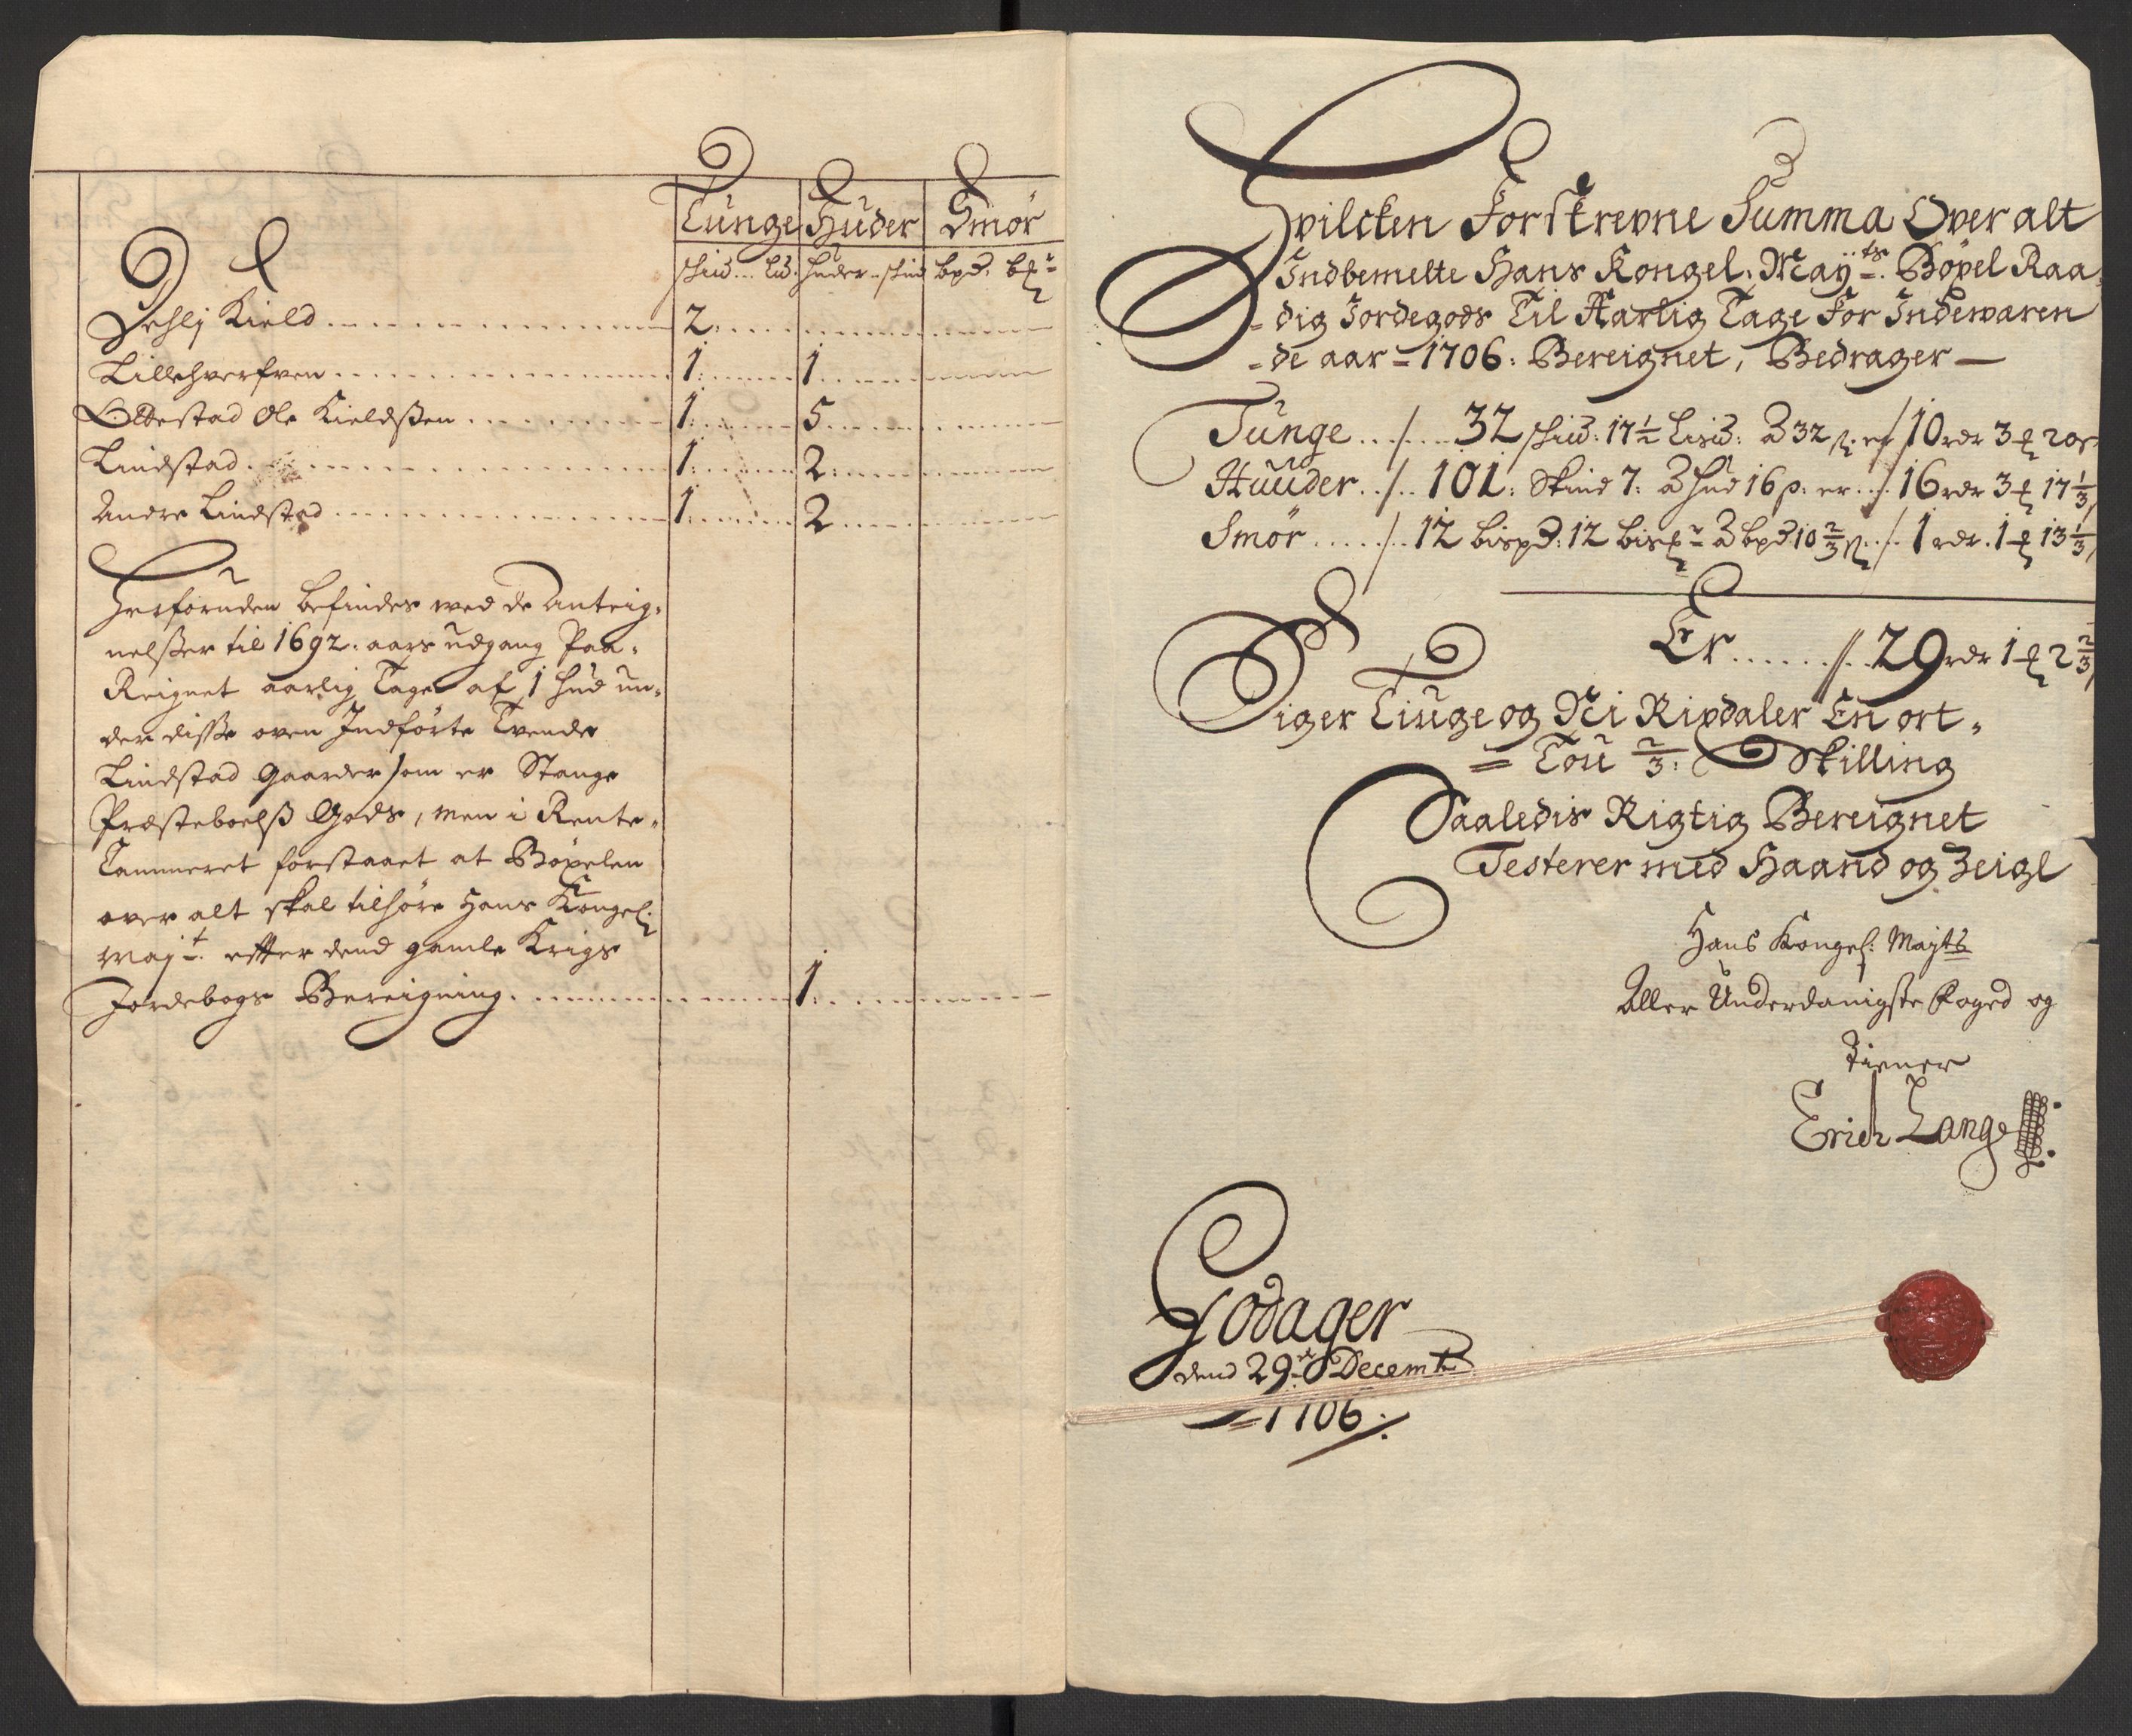 Tunge Huder Smör
Schiu... Lu. Huder - skind bpd. b℔r
Dehlj Kield 2.
Lillehverfven 1. 1.
Ottestad Ole Kieldssen 1. 5.
Lindstad 1. 2.
Andre Lindstad 1. 2
Herforuden befindes med de Anteig-
nelsser til 1692. aars udgang Paa-
Reignet aarlig Tage af 1 hud un-
der disse oven Indförte Tvende
Lindstad Gaarder som er Stange
Præsteboelss Gods, men i Rente-
Cammeret forstaaet at Böxelen
over alt skal tilhöre Hans Kongel.
Mayt. efter dend gamle Krigs
Jordebogs Bereigning. 1.
Hvilcken Forskrevne Summa Over alt
Indbemelte Hans Kongel. Mayts. Böxel Raa-
-dig Jordegods Til Aarlig Tage For Indewæren
-de aar = 1706: Bereignet, Bedrager —
Tunge ../... 32 schiu: 17½ Lisu: a 32 s. er / 10 rdr 3 ℔ 20 s
Huuder ../.. 101: Skind 7: a Hud 16 s. er ../. 16 rdr 3 ℔ 17⅓
Smör ...../.. 12 bispd: 12 bis℔r a bpd 10⅔ s ../. 1 rdr. 1 ℔ 13⅓
Er ...... //.. 29 rdr 1 ℔ 2⅔
Siger Tiuge og Ni Rixdaler En ort-
= Tou ⅔: Skilling
Saaledis Rigtig Bereignet
Testerer med Haand og Zeigl
Hans Kongel: Mayts
Aller Underdanigste Foged og
Tiener
Erich Lange
Godager
dend 29de Decemb
= 1706.